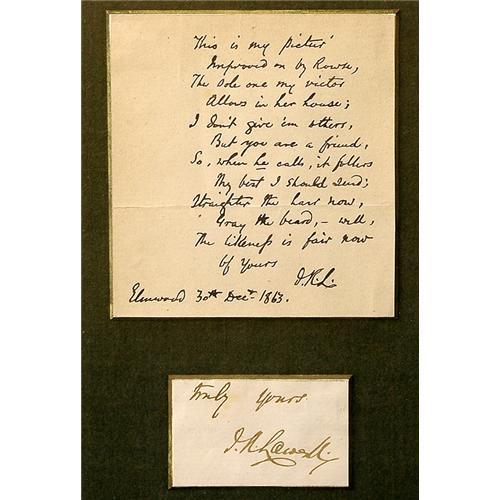 This is my pictur'
Improved on by Rowse,
The sole one my victor
Allows in her house;
I don't give 'em others,
But you are a friend,
So, when he calls, it follers
My best I should send;
Straighter the hair now,
Gray the beard, – well,
The likeness is fair now
Of Yours
J.R.L.
Elmwood 30th Decr. 1863.
truly yours
J. R. Lowell.